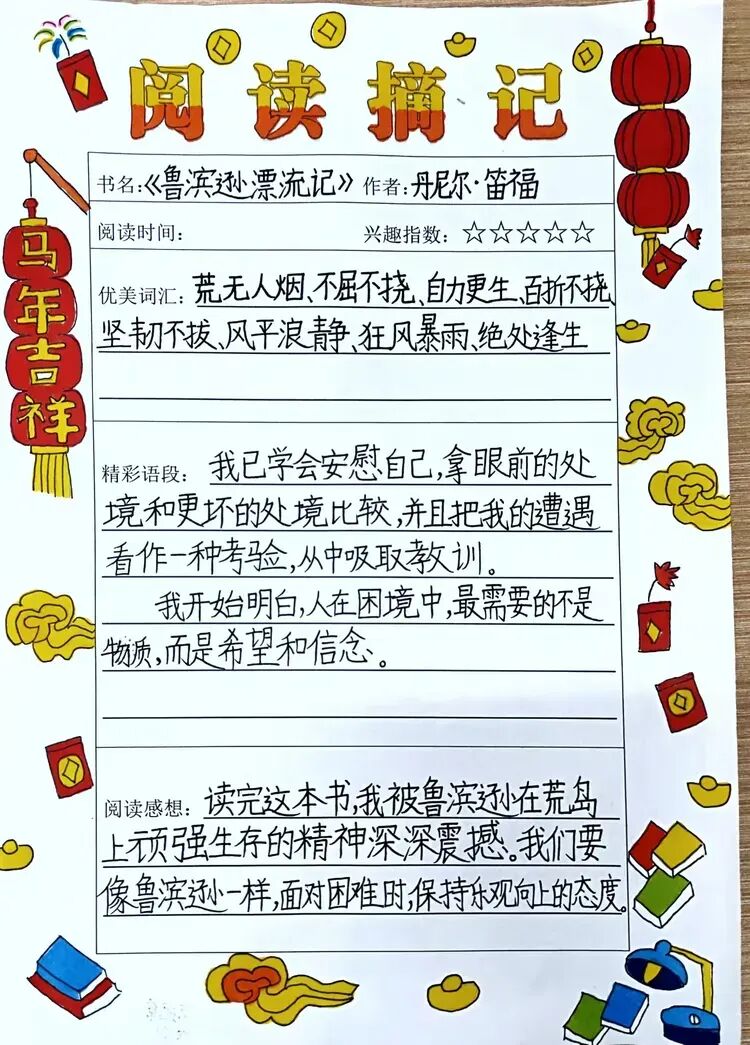 阅读摘记
马年吉祥
书名:《鲁滨逊漂流记》 作者:丹尼尔·笛福
阅读时间: 兴趣指数: ☆☆☆☆☆
优美词汇: 荒无人烟、不屈不挠、自力更生、百折不挠、
坚韧不拔、风平浪静、狂风暴雨、绝处逢生
精彩语段: 我已学会安慰自己,拿眼前的处
境和更坏的处境比较,并且把我的遭遇
看作一种考验,从中吸取教训。
我开始明白,人在困境中,最需要的不是
物质,而是希望和信念。
阅读感想: 读完这本书,我被鲁滨逊在荒岛
上顽强生存的精神深深震撼。我们要
像鲁滨逊一样,面对困难时,保持乐观向上的态度。